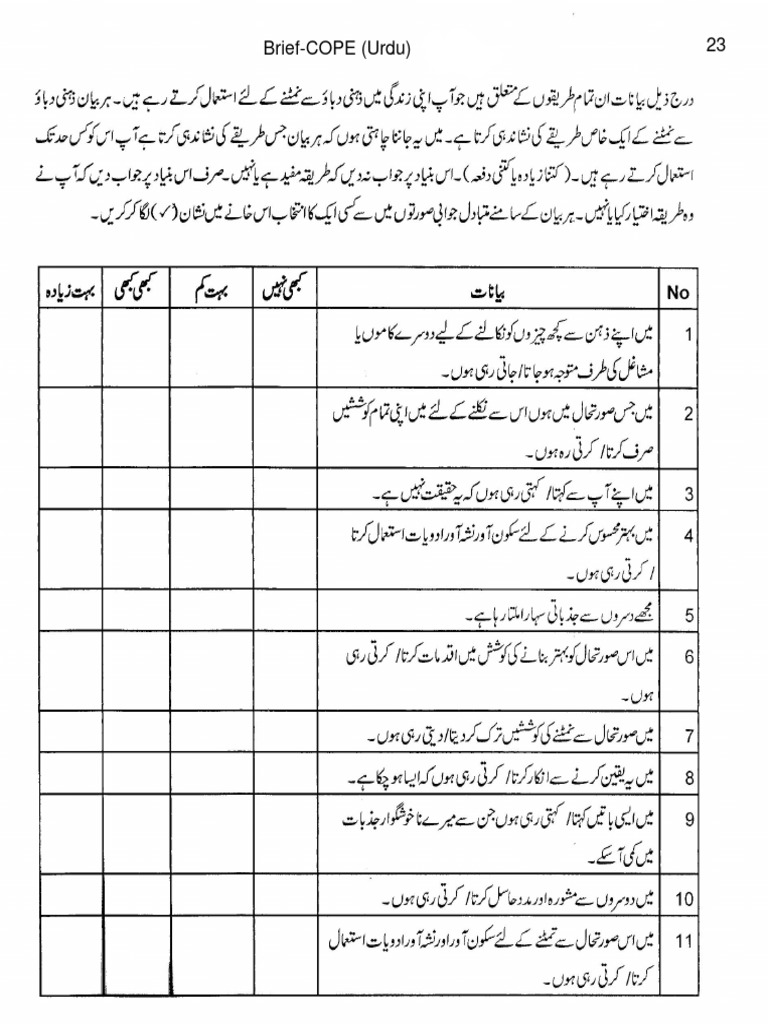 Brief-COPE (Urdu)
23
درج ذیل بیانات ان تمام طریقوں کے متعلق ہیں جو آپ اپنی زندگی میں ذہنی دباؤ سے نمٹنے کے لئے استعمال کرتے رہے ہیں۔ ہر بیان ذہنی دباؤ
سے نمٹنے کے ایک خاص طریقے کی نشاندہی کرتا ہے۔ میں یہ جاننا چاہتی ہوں کہ ہر بیان جس طریقے کی نشاندہی کرتا ہے آپ اس کو کس حد تک
استعمال کرتے رہے ہیں۔ (کتنا زیادہ یا کتنی دفعہ)۔ اس بنیاد پر جواب نہ دیں کہ طریقہ مفید ہے یا نہیں۔ صرف اس بنیاد پر جواب دیں کہ آپ نے
وہ طریقہ اختیار کیا یا نہیں۔ ہر بیان کے سامنے متبادل جوابی صورتوں میں سے کسی ایک کا انتخاب اس خانے میں نشان (✓) لگا کر کریں۔
No بیانات کبھی نہیں بہت کم کبھی کبھی بہت زیادہ
1 میں اپنے ذہن سے کچھ چیزوں کو نکالنے کے لیے دوسرے کاموں یا
مشاغل کی طرف متوجہ ہو جاتا/ جاتی رہی ہوں۔
2 میں جس صورتحال میں ہوں اس سے نکلنے کے لئے میں اپنی تمام کوششیں
صرف کرتا/ کرتی رہ ہوں۔
3 میں اپنے آپ سے کہتا/ کہتی رہی ہوں کہ یہ حقیقت نہیں ہے۔
4 میں بہتر محسوس کرنے کے لئے سکون آور نشہ آور ادویات استعمال کرتا
/ کرتی رہی ہوں۔
5 مجھے دسروں سے جذباتی سہارا ملتا رہا ہے۔
6 میں اس صورتحال کو بہتر بنانے کی کوشش میں اقدمات کرتا/ کرتی رہی
ہوں۔
7 میں صورتحال سے نمٹنے کی کوششیں ترک کر دیتا/ دیتی رہی ہوں۔
8 میں یہ یقین کرنے سے انکار کرتا/ کرتی رہی ہوں کہ ایسا ہو چکا ہے۔
9 میں ایسی باتیں کہتا/ کہتی رہی ہوں جن سے میرے ناخوشگوار جذبات
میں کمی آ سکے۔
10 میں دوسروں سے مشورہ اور مدد حاسل کرتا/ کرتی رہی ہوں۔
11 میں اس صورتحال سے نمٹنے کے لئے سکون آور اور نشہ آور ادویات استعمال
کرتا/ کرتی رہی ہوں۔